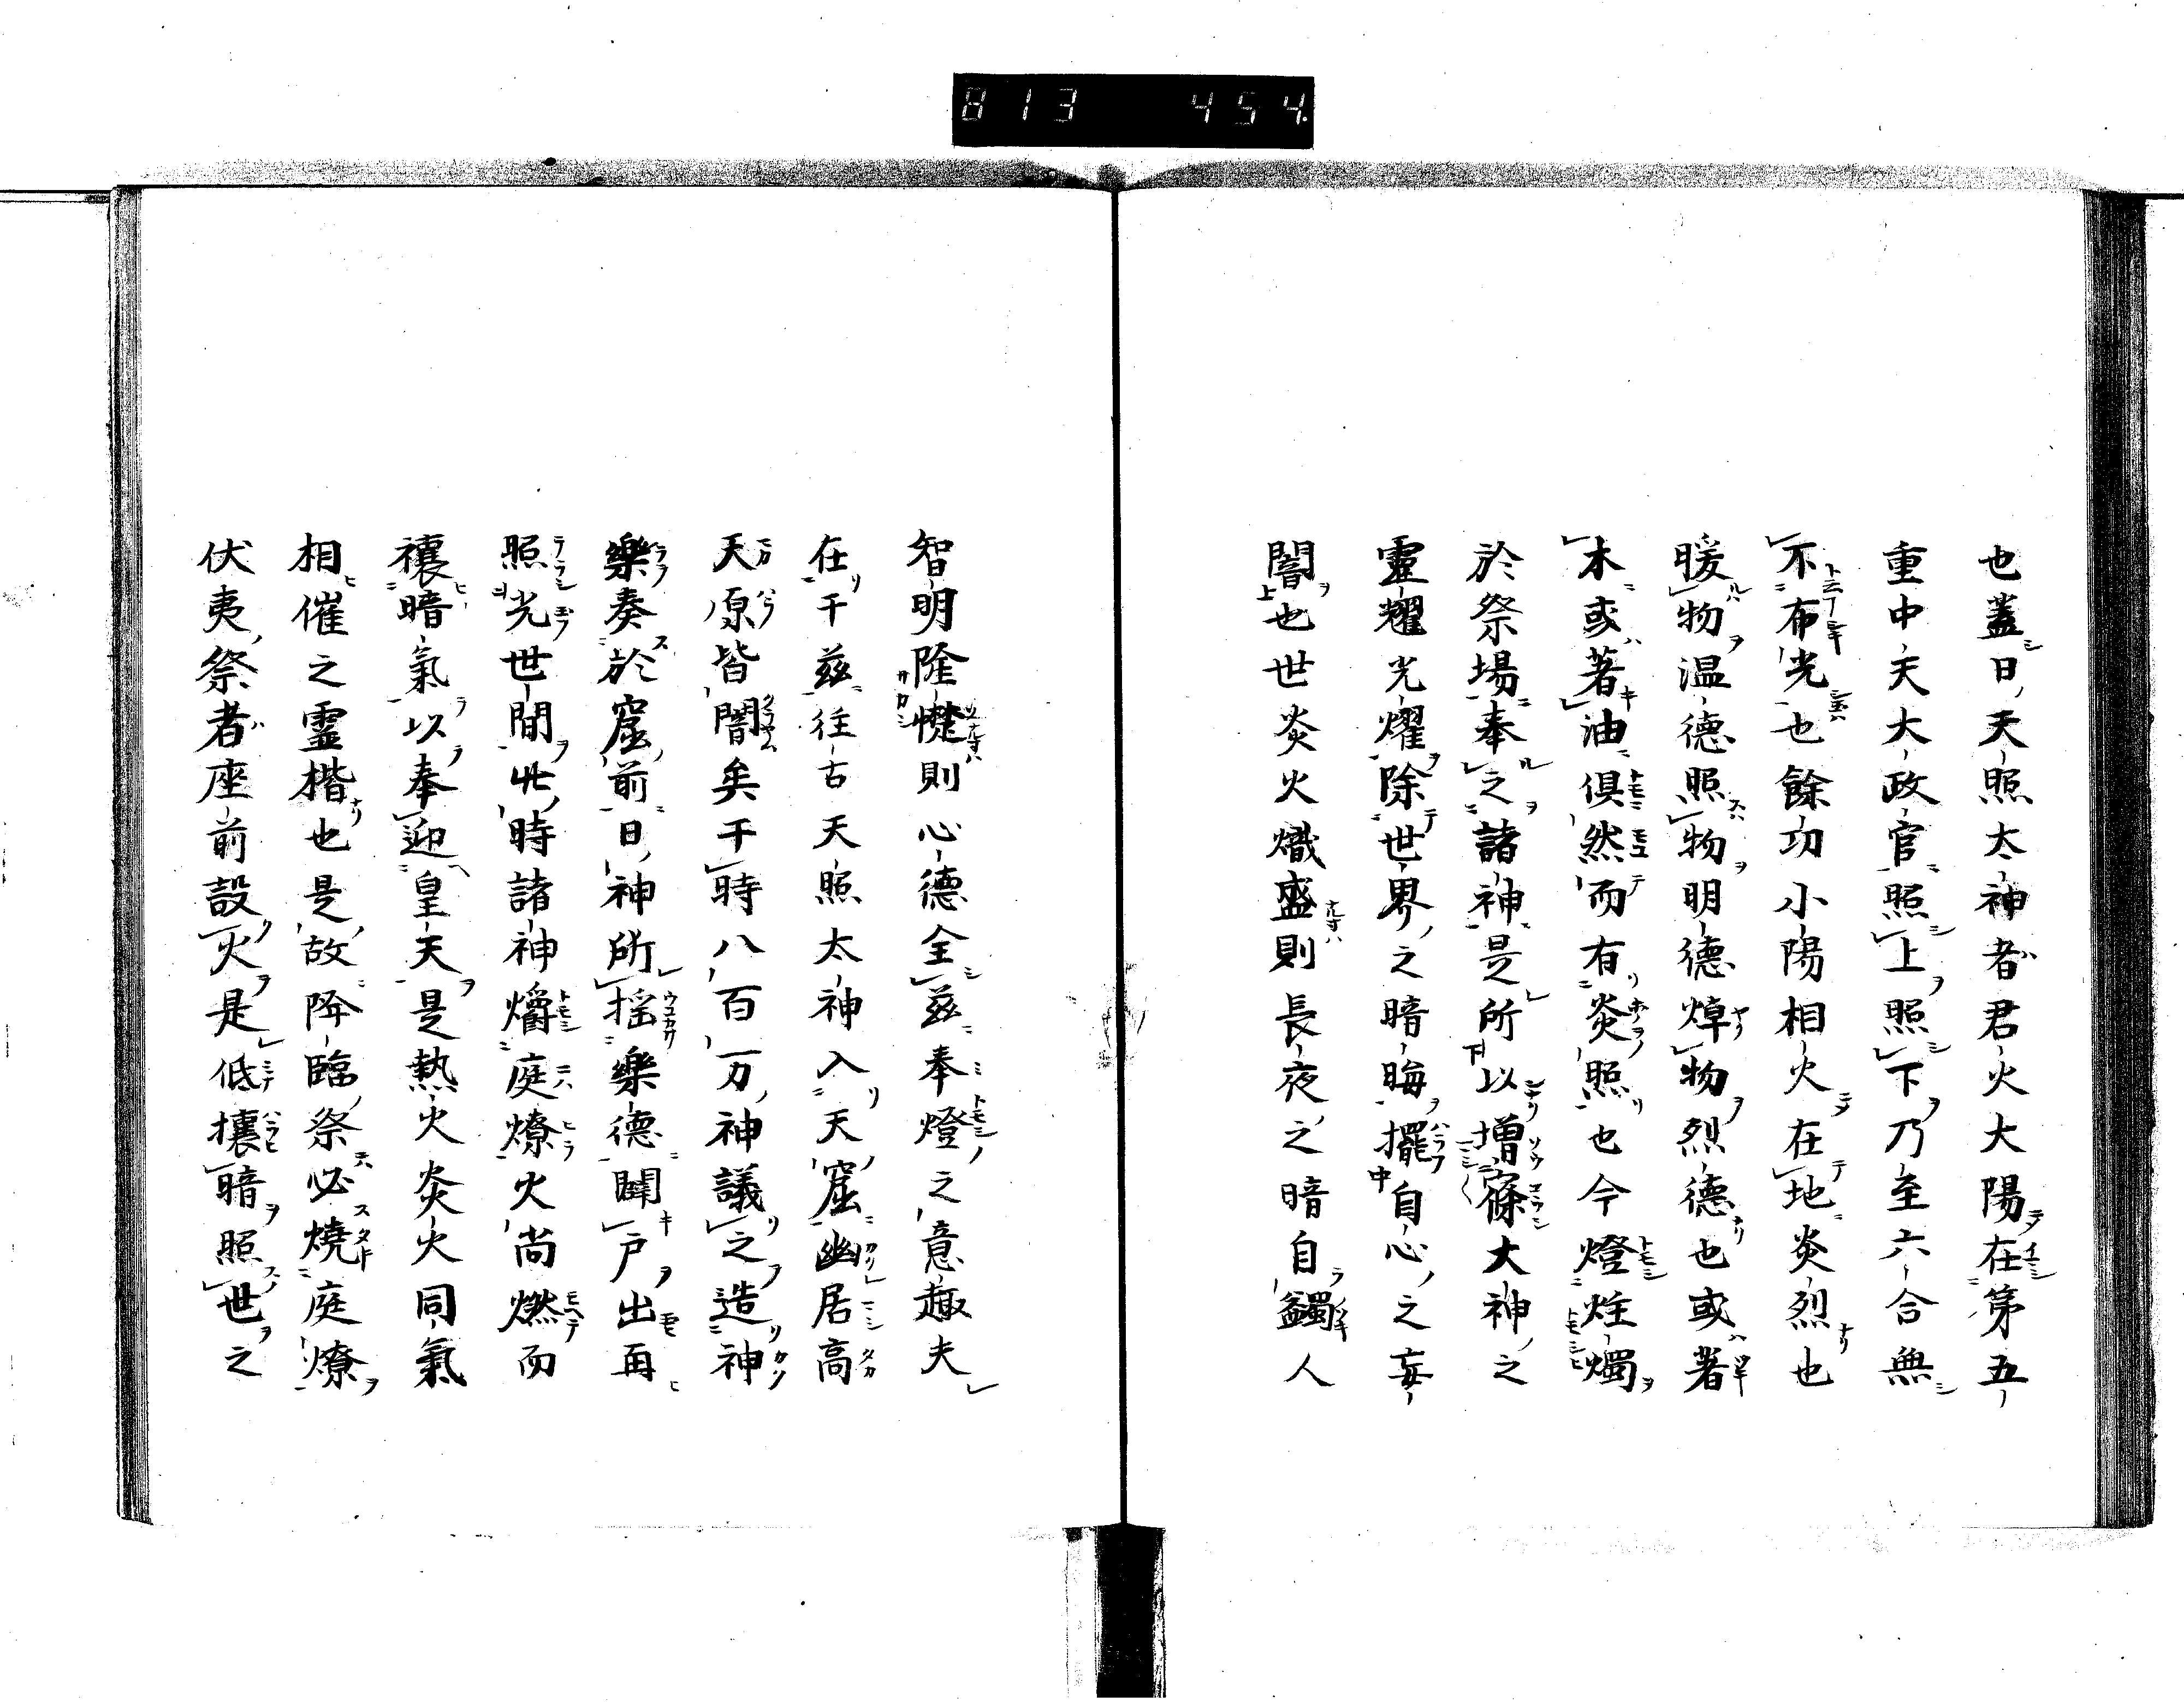 813 454.
也蓋日天照太神者君火大陽在第五
重中天大政官照上照下乃至六合無
不布光也餘功小陽相火在地炎烈也
暖物温德照物明德焯物烈德也或著
木或著油俱然而有炎照也今燈炷燭
於祭場奉之諸神是所以增寱大神之
靈耀光燿除世界之暗晦擺自心之妄
闇也世炎火熾盛則長夜之暗自蠲人
智明隆憷則心德全茲奉燈之意趣夫
在干茲往古天照太神入天窟幽居高
天原皆闇矣干時八百万神議之造神
樂奏於窟前日神所揺樂德開戶出再
照光世間此時諸神爝庭燎火尚燃而
禳暗氣以奉迎皇天是熱火炎火同氣
相催之靈楷也是故降臨祭必燒庭燎
伏夷祭者座前設火是低攘暗照世之